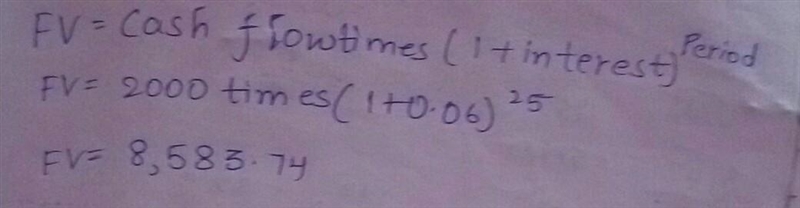 FV = Cash flowtimes (1+interest)^Period
FV = 2000 times (1+0.06)^25
FV = 8,583.74